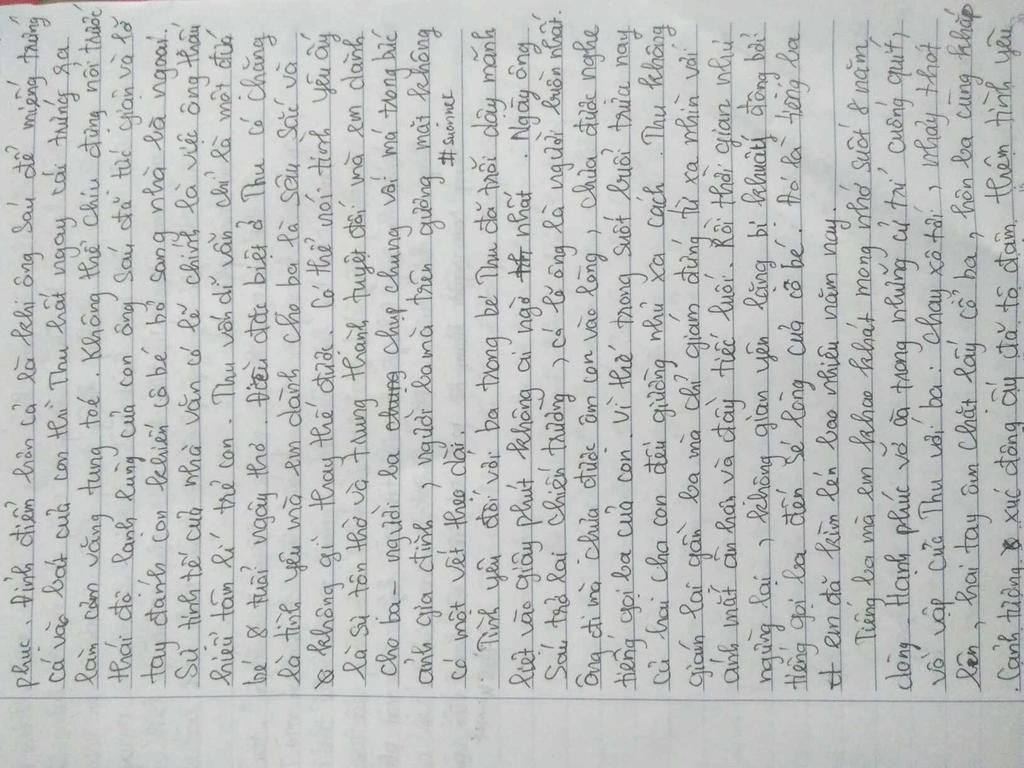 phục. Đỉnh điểm hơn cả là khi ông Sáu để miếng trứng
cá vào bát của con thì Thu hất ngay cái trứng ra
làm cơm văng tung toé. Không thể chịu đựng nổi trước
thái độ lạnh lùng của con ông Sáu đã tức giận và lỡ
tay đánh con khiến cô bé bỏ sang nhà bà ngoại.
Sự tinh tế của nhà văn có lẽ chính là việc ông thấu
hiểu tâm lí trẻ con. Thu vốn dĩ vẫn chỉ là một đứa
bé 8 tuổi ngây thơ. Điều đặc biệt ở Thu có chăng
là tình yêu mà em dành cho ba là sâu sắc và
không gì thay thế được. Có thể nói tình yêu ấy
là sự tôn thờ và trung thành tuyệt đối mà em dành
cho ba - người ba chụp chung với má trong bức
ảnh gia đình, người ba mà trên gương mặt không
có một vết thẹo dài. #saonnet
Tình yêu đối với ba trong bé Thu đã trỗi dậy mãnh
liệt vào giây phút không ai ngờ nhất. Ngày ông
Sáu trở lại chiến trường, có lẽ ông là người buồn nhất.
Ông đi mà chưa được ôm con vào lòng, chưa được nghe
tiếng gọi ba của con. Vì thế trong suốt buổi trưa nay
cả hai cha con đều gường như xa cách. Thu không
giám lại gần ba mà chỉ giám đứng từ xa nhìn với
ánh mắt ân hận và đầy tiếc luối. Rồi thời gian như
ngừng lại, không gian yên lặng bị khuấy động bởi
tiếng gọi ba đến sé lòng của cô bé. Đó là tiếng ba
em đã kìm lén bao nhiêu năm nay.
Tiếng ba mà em khao khát mong nhớ suốt 8 năm
dòng. Hạnh phúc vỡ oà trong những cử trỉ cuống quít,
vồ vập của Thu với ba: chạy xô tới, nhảy thót
lên, hai tay ôm chặt lấy cổ ba, hôn ba cùng khắp
. Cảnh tượng xúc động ấy đã tô đậm thêm tình yêu